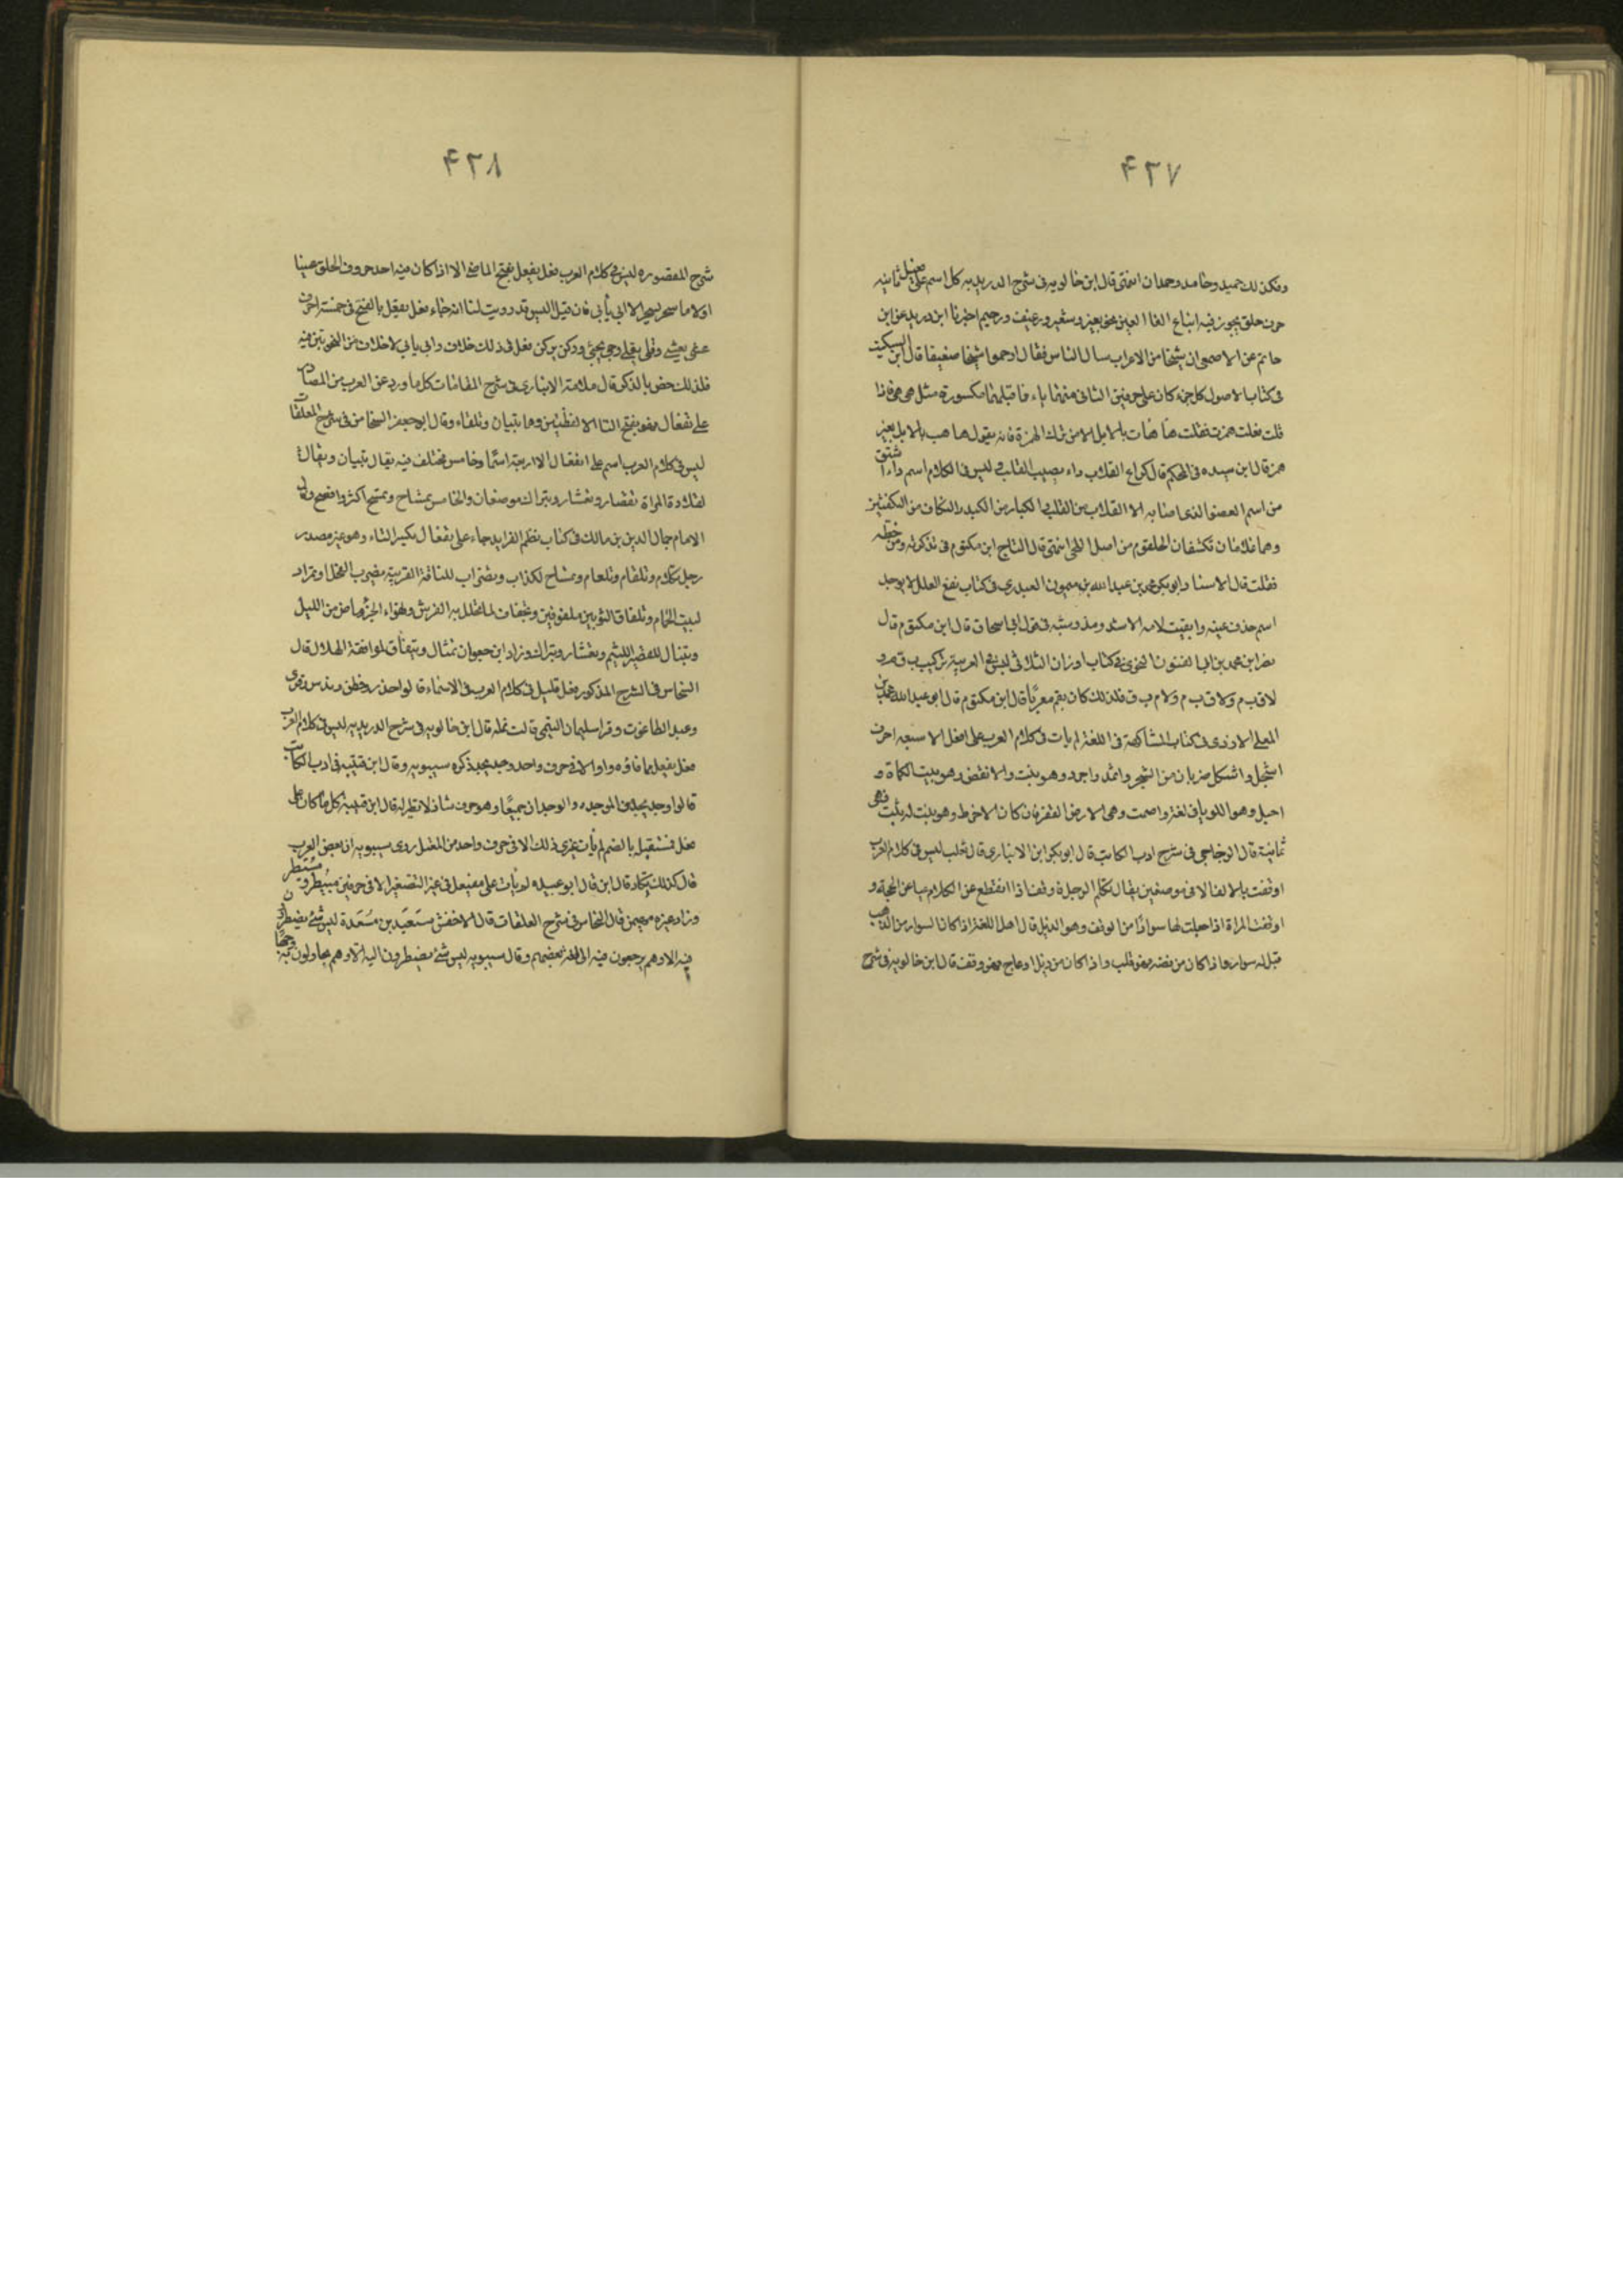 ۴۲۷
وكذلك حميد وحامد وحمدان انتهى قال ابن خالويه فى شرح الدريديه كل اسم على فعيل ثانيه
حرف حلق يجوز فيه اتباع الفا العين نحو بعير وشعير ورغيف ورحيم اخبرنا ابن دريد عن ابن
حاتم عن الاصمعى ان شيخا من الاعراب سال الناس فقال ارحموا شيخا ضعيفا قال ابن السكيت
فى كتاب الاصول كل جزء كان على حرفين الثانى منهما ياء فما قبلهما مكسورة مثل هى هى فاذا
قلت فعلت همزت فقلت هأهأت بالابل الا من ترك الهمزة فانه يقول هاهيت بالابل بغير
همز قال ابن سيده فى المحكم قال كراع القلاب داء يصيب القلب وليس فى الكلام اسم داء اشتق
من اسم العضو الذى اصابه الا القلاب من القلب والكباد من الكبد والنكاف من النكفتين
وهما غدتان تكتنفان الحلقوم من اصل اللحى انتهى قال التاج ابن مكتوم فى تذكرته ومن خطه
نقلت قال الاستاد ابو بكر محمد بن عبد الله بن ميمون العبدرى فى كتاب نقع الغلل لا يوجد
اسم حذف عينه وابقيت لامه الا سه ومذ وثبة فى قول ابى اسحاق قال ابن مكتوم قال
نصر ابن محمد بن ابى الفنون النحوى فى كتاب اوزان الثلاثى ليس فى العربية تركيب ب ق م و
لا ق ب م ولا ق ب م ولا م ب ق فلذلك كان بقم معربا قال ابن مكتوم قال ابو عبد الله محمد بن
المعلى الازدى فى كتاب المشاكهة فى اللغة لم يات فى كلام العرب على افعل الا سبعه احرف
اسحل واشكل ضربان من الشجر واثمد واجرد وهو نبت والانقض وهو بيت الكماة و
احبل وهو اللوبيا فى لغة واصمت وهى الارض القفر فان كان الاخرط وهو نبت له يثبت فهى
ثمانية قال الزجاجى فى شرح ادب الكاتب قال ابو بكر ابن الانبارى قال ثعلب ليس فى كلام العرب
اوقفت بالالف الا فى موضعين يقال تكلم الرجل فاوقف اذا انقطع عن الكلام عيا عن الحجة و
اوقفت المراة اذا جعلت لها سوارا من الوقف وهو الذبل قال اهل اللغة اذا كان السوار من الذهب
قيل له سوار واذا كان من فضه فهو قلب واذا كان من ذبل او عاج فهو وقف قال ابن خالويه فى شرح
۴۲۸
شرح المقصوره ليس فى كلام العرب فعل يفعل بفتح الماضى الا اذا كان فيه احد حروف الحلق عينا
او لاما سحر يسحر الا ابى يأبى فان قيل اليس قد رويت لنا انه جاء فعل يفعل بالفتح فى خمسة احرف
عشى يعشى وقلى يقلى وجبى يجبى وركن يركن فقل فى ذلك خلاف وابى يابى لا خلاف من النحويين فيه
فلذلك خص بالذكر قال سلامة الانبارى فى شرح المقامات كل ما ورد عن العرب من المصادر
على تفعال فهو بفتح التا الا لفظتين وهما تبيان وتلقاء وقال ابو جعفر النحاس فى شرح المعلقات
ليس فى كلام العرب اسم على تفعال الا اربعة اسما وخامس مختلف فيه يقال تبيان ويقال
لقلادة المراة تقصار وتعشار وتبراك موضعان والخامس تمساح وتمسح اكثر وافصح وقال
الامام جمال الدين بن مالك فى كتاب نظم الفرايد جاء على تفعال بكسر التاء وهو غير مصدر
رجل تكلام وتلقام وتلعاب وتمساح لكذاب وتضراب للناقة القريبة بضراب الفحل وتمراد
لبيت الحمام وتلفاق لثوبين ملفوقين وتجفاف لما تجلل به الفرس وتهواء لجزء ماض من الليل
وتنبال للقصير اللئيم وتعشار وتبراك وزاد ابن جعوان تمثال وتيفاق لموافقة الهلال قال
النحاس فى الشرح المذكور فعل قليل فى كلام العرب فى الاسماء قالوا حذر وفطن وندس وقرئ
وعبد الطاغوت وقرا سليمان التيمى قالت نملة قال ابن خالويه فى شرح الدريديه ليس فى كلام العرب
فعل يفعل مما فاؤه واو الا فى حرف واحد وجد يجد ذكره سيبويه وقال ابن قتيبه فى ادب الكاتب
قالوا وجد يجد من الموجده والوجدان جميعا وهو حرف شاذ لا نظير له قال ابن قتيبة كل ما كان على
فعل فمستقبله بالضم لم يأت غير ذلك الا فى حرف واحد من المعتل روى سيبويه ان بعض العرب
قال كدت تكاد قال ابن قال ابو عبيده لم يات على مفيعل فى غير التصغير الا فى حرفين مبيطر ومسيطر
وزاد غيره مهيمن قال النحاس فى شرح المعلقات قال الاخفش سعيد بن مسعدة ليس شئ يضطرون
فيه الا وهم يرجعون فيه الى لغة بعضهم وقال سيبويه ليس شئ يضطرون اليه الا وهم يحاولون به وجها